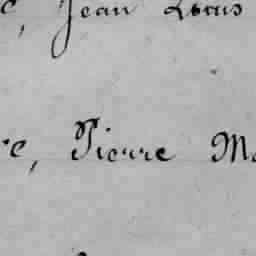 e, Jean Louis
re, Pierre Ma